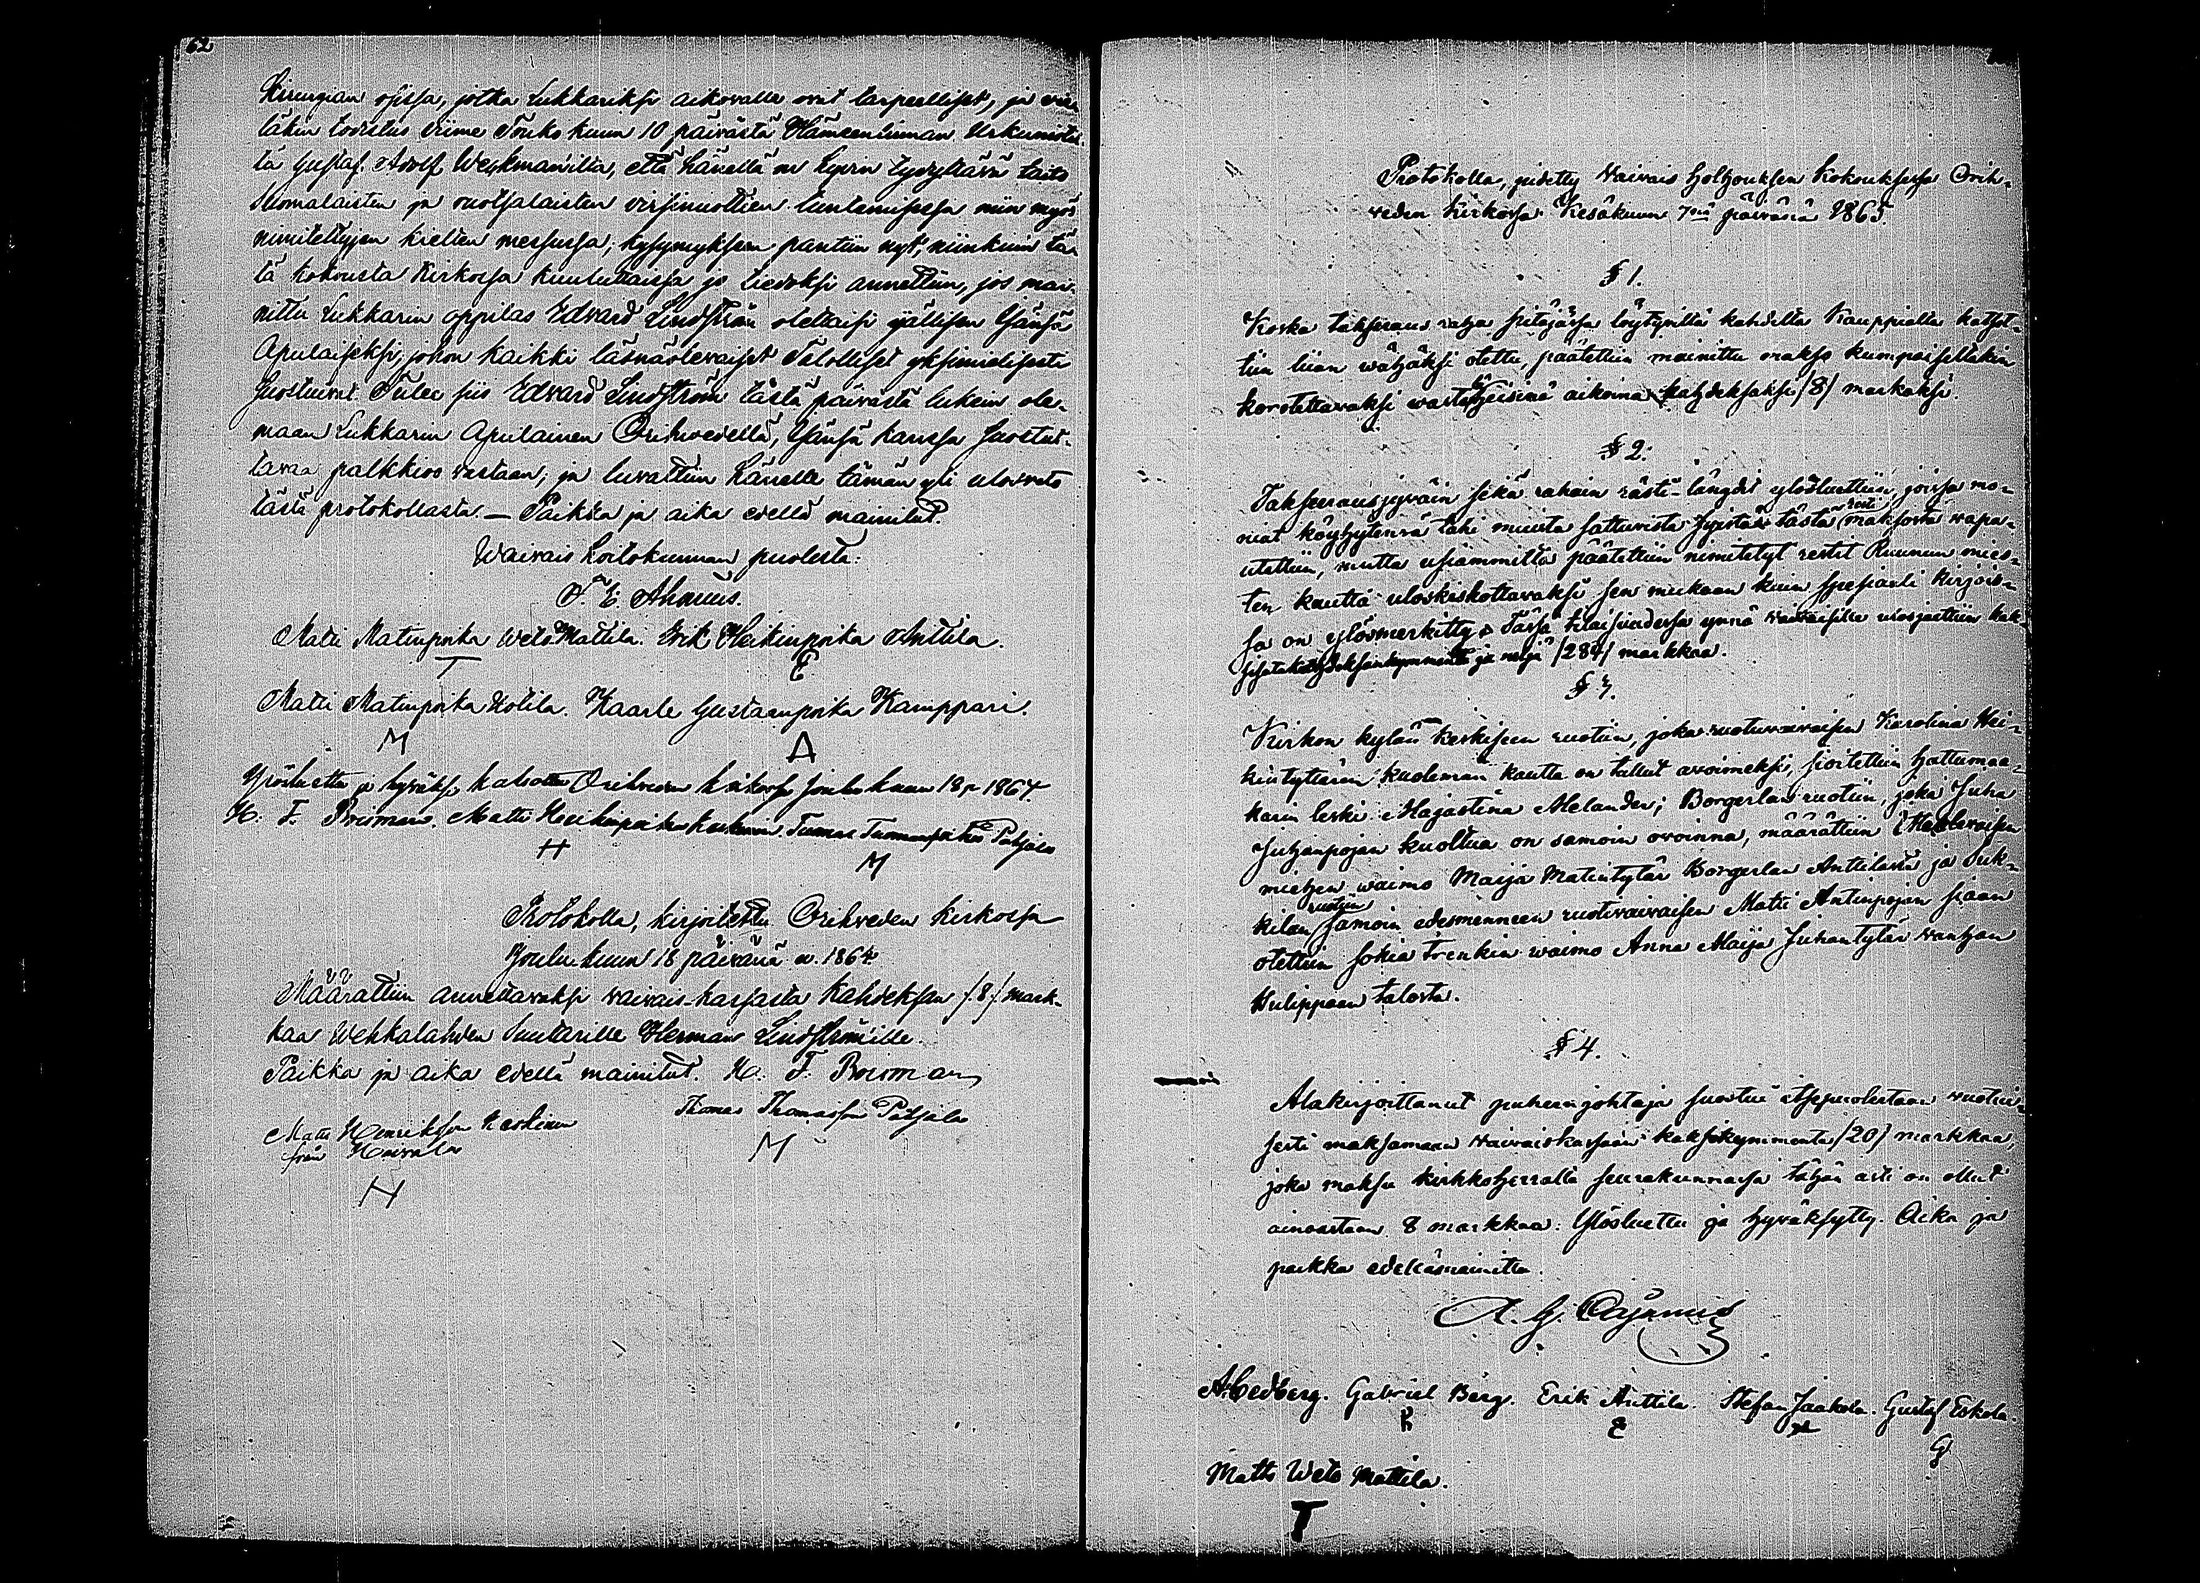 62
Kirurgian osissa, jotka Lukkariksi aikovalle ovat tarpeelliset, ja
läkin todistus viime Toukokuun 10 päivästä Hämeenlinnan Urkunistil-
tä Gustaf Adolf Weckman'ilta, että hänellä on hyvin tydyttävä taito
Suomalaisten ja ruotsalaisten virsinuottien tuntemisessa niin myös
nimitettyjen kielten messussa; kysymykseen pantiin nyt, niinkuin tä-
tä kokousta kirkossa kuuluttaissa jo tiedoksi annettiin, jos mai-
nittu Lukkarin oppilas Edvard Lindström otettaisi jällisen Yänsä
Apulaiseksi, johon kaikki läsnäolevaiset Talolliset yksimielisesti
suostuivat. Tulee siis Edvard Lindström tästä päivästä lukein ole-
maan Lukkarin Apulainen Orihvedellä, Yänsä kanssa suostut-
tavaa palkkioo vastaan; ja luvattiin hänelle tämän yli ulosveto
tästä protokollasta. — Paikka ja aika edellä mainitut.
Waivais hoitokunnan puolesta:
F. E. Ahonius.
Matti Matinpoika Weto Mattila. Erik Heikinpoika Anttila.
T E
Matti Matinpoika Hotila. Kaarle Gustaanpoika Kamppari.
M A
Ylösluettu ja hyväksi katsottu Orihveden kirkossa Joulukuun 18 p. 1864.
K. F. Broman. Matti Heikinpoika Keskinen Tuomas Tuomaanpoika Pohjala
H M
Protokolla, kirjoitettu Orihveden kirkossa
Joulu-kuun 18 päivänä v. 1864.
Määrättiin annettavaksi vaivais-kassasta kahdeksan /8/ mark-
kaa Wehkalahden Suutarille Herman Lindström'ille.
Paikka ja aika edellä mainitut. K. F. Broman
Thomas Thomasson Pohjala
Matts Henriksson Keskinen
från Koivula
M
H
Protokolla, pidetty Waivais holhouksen kokouksessa Orih-
veden kirkossa Kesäkuun 7nä päivänä 1865.
§ 1.
Koska takseeraus raha pitäjässä löytyviltä kahdelta kauppialta katsot-
tiin liian wähäksi otettu, päätettiin mainittu maksо kumpaiseltakin
korotettavaksi wastaseisinä aikoina kahdeksaksi /8/ markaksi.
§ 2.
Takseerausjyväin sekä rahain rästi-längdit ylösluettiin, joissa mo-
niat köyhytensä tähi muista sattuvista syistä tästä maksosta wapa-
utettiin, mutta usiammilta päätettiin nimitetyt restit Ruunun mies-
ten kautta uloskiskottavaksi sen mukaan kuin spesiaali kirjois-
sa on ylösmerkitty. Tässä tilaisuudessa ynnä waivaisille ulosjaettiin kak-
sisatakahdeksankymmentä ja neljä /284/ markkaa.
§ 3.
Kirkon kylän keskiseen ruotiin, joka ruotuvaivaisen Karolina Hei-
kintyttären kuoleman kautta on tullut avoimeksi, sioitettiin hattumaa-
karin leski Majastina Melander; Borgerlan ruotiin, joka Juha
Juhanpojan kuoltua on samoin avoinna, määrättiin itsellvaisen
miehen waimo Maija Matintytär Borgerlan Anttilasta ja Suk-
kilan ruotiin samoin edesmenneen ruotivaivaisen Matti Antinpojan siaan
otettiin sokia trenkin waimo Anna Maija Juhantytär wanhan
Hulippaan talosta.
§ 4.
Alakirjoittanut puheenjohtaja suostui itsepuolestaan vuotui-
sesti maksamaan waivaiskassaan kaksikymmentä /20/ markkaa,
joka maksu kirkkoherralta seurakunnassa tähän asti on ollut
ainoastaan 8 markkaa. Ylösluettu ja hyväksytty. Aika ja
paikka edelläsmainittu.
A. G. Cajanus
A. Cedberg. Gabriel Berg. Erik Anttila. Stefan Jaakola. Gustaf Eskola.
E G
Matts Weto Mattila.
T